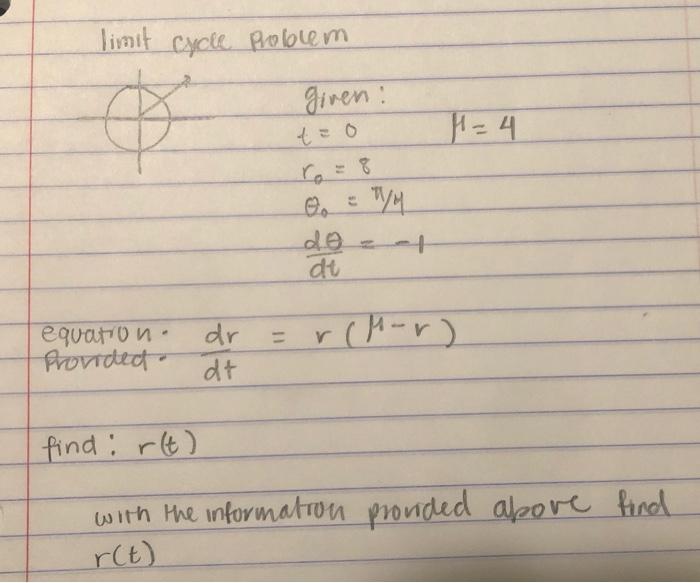 limit cycle problem
given:
t = 0 μ = 4
r₀ = 8
θ₀ = π/4
dθ/dt = -1
equation · dr/dt = r(μ-r)
Provided ·
find: r(t)
with the information provided above find
r(t)